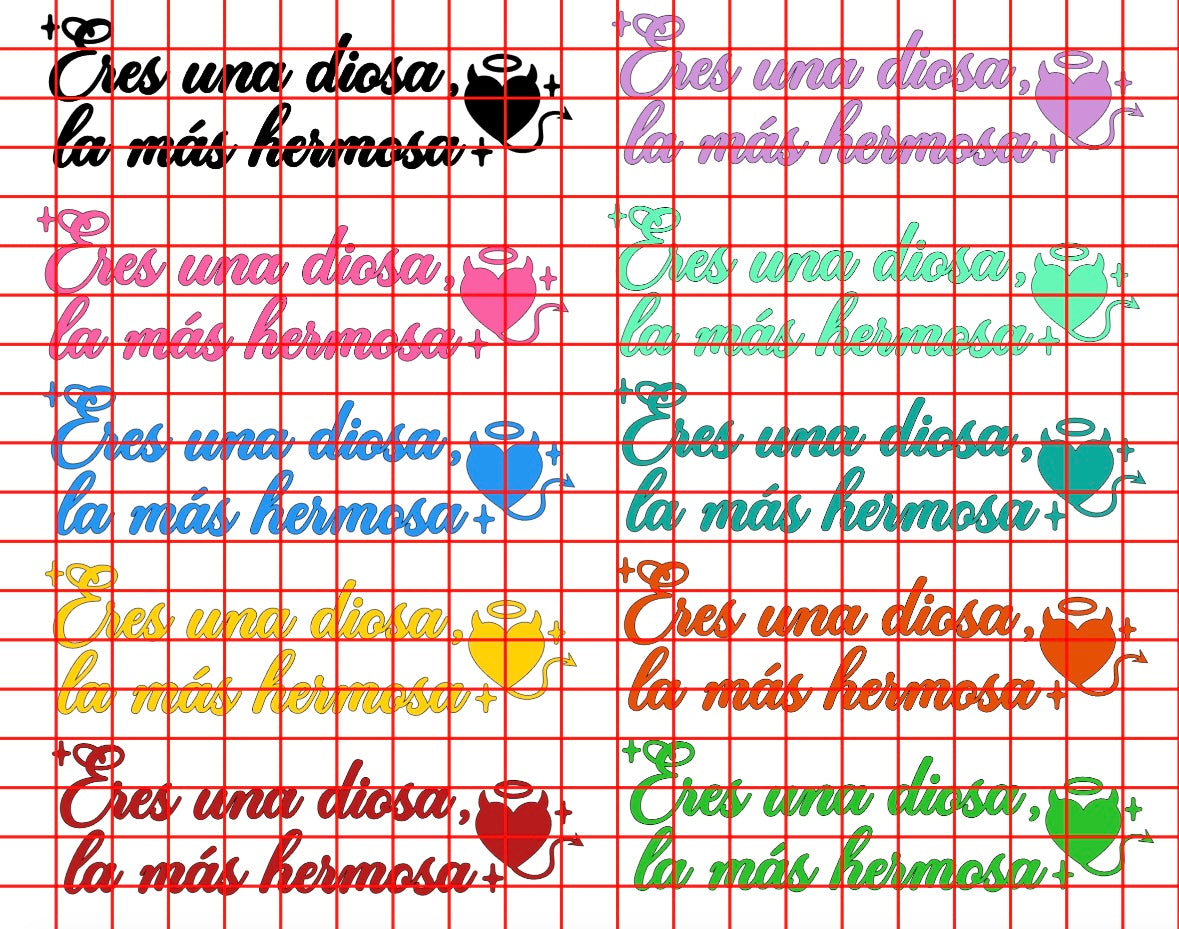 Eres una diosa,
la más hermosa
Eres una diosa,
la más hermosa
Eres una diosa,
la más hermosa
Eres una diosa,
la más hermosa
Eres una diosa,
la más hermosa
Eres una diosa,
la más hermosa
Eres una diosa,
la más hermosa
Eres una diosa,
la más hermosa
Eres una diosa,
la más hermosa
Eres una diosa,
la más hermosa